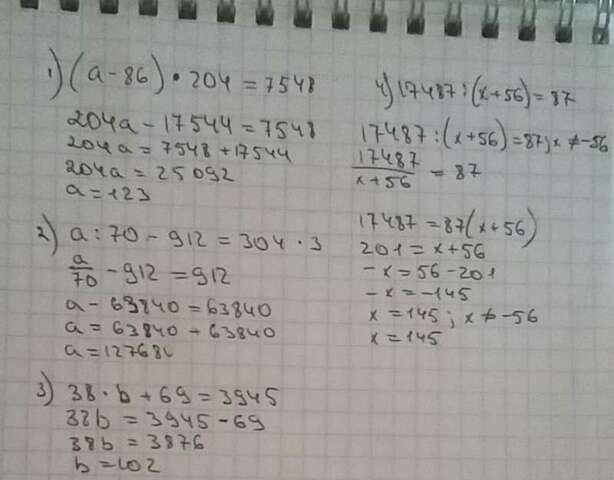 1) (a-86) • 204 = 7548
204a - 17544 = 7548
204a = 7548 + 17544
204a = 25092
a = 123
2) a : 70 - 912 = 304 • 3
a/70 - 912 = 912
a - 63840 = 63840
a = 63840 + 63840
a = 127680
3) 38 • b + 69 = 3945
38b = 3945 - 69
38b = 3876
b = 102
4) 17487 : (x+56) = 87
17487 : (x+56) = 87; x ≠ -56
17487/x+56 = 87
17487 = 87(x+56)
201 = x+56
-x = 56-201
-x = -145
x = 145; x ≠ -56
x = 145